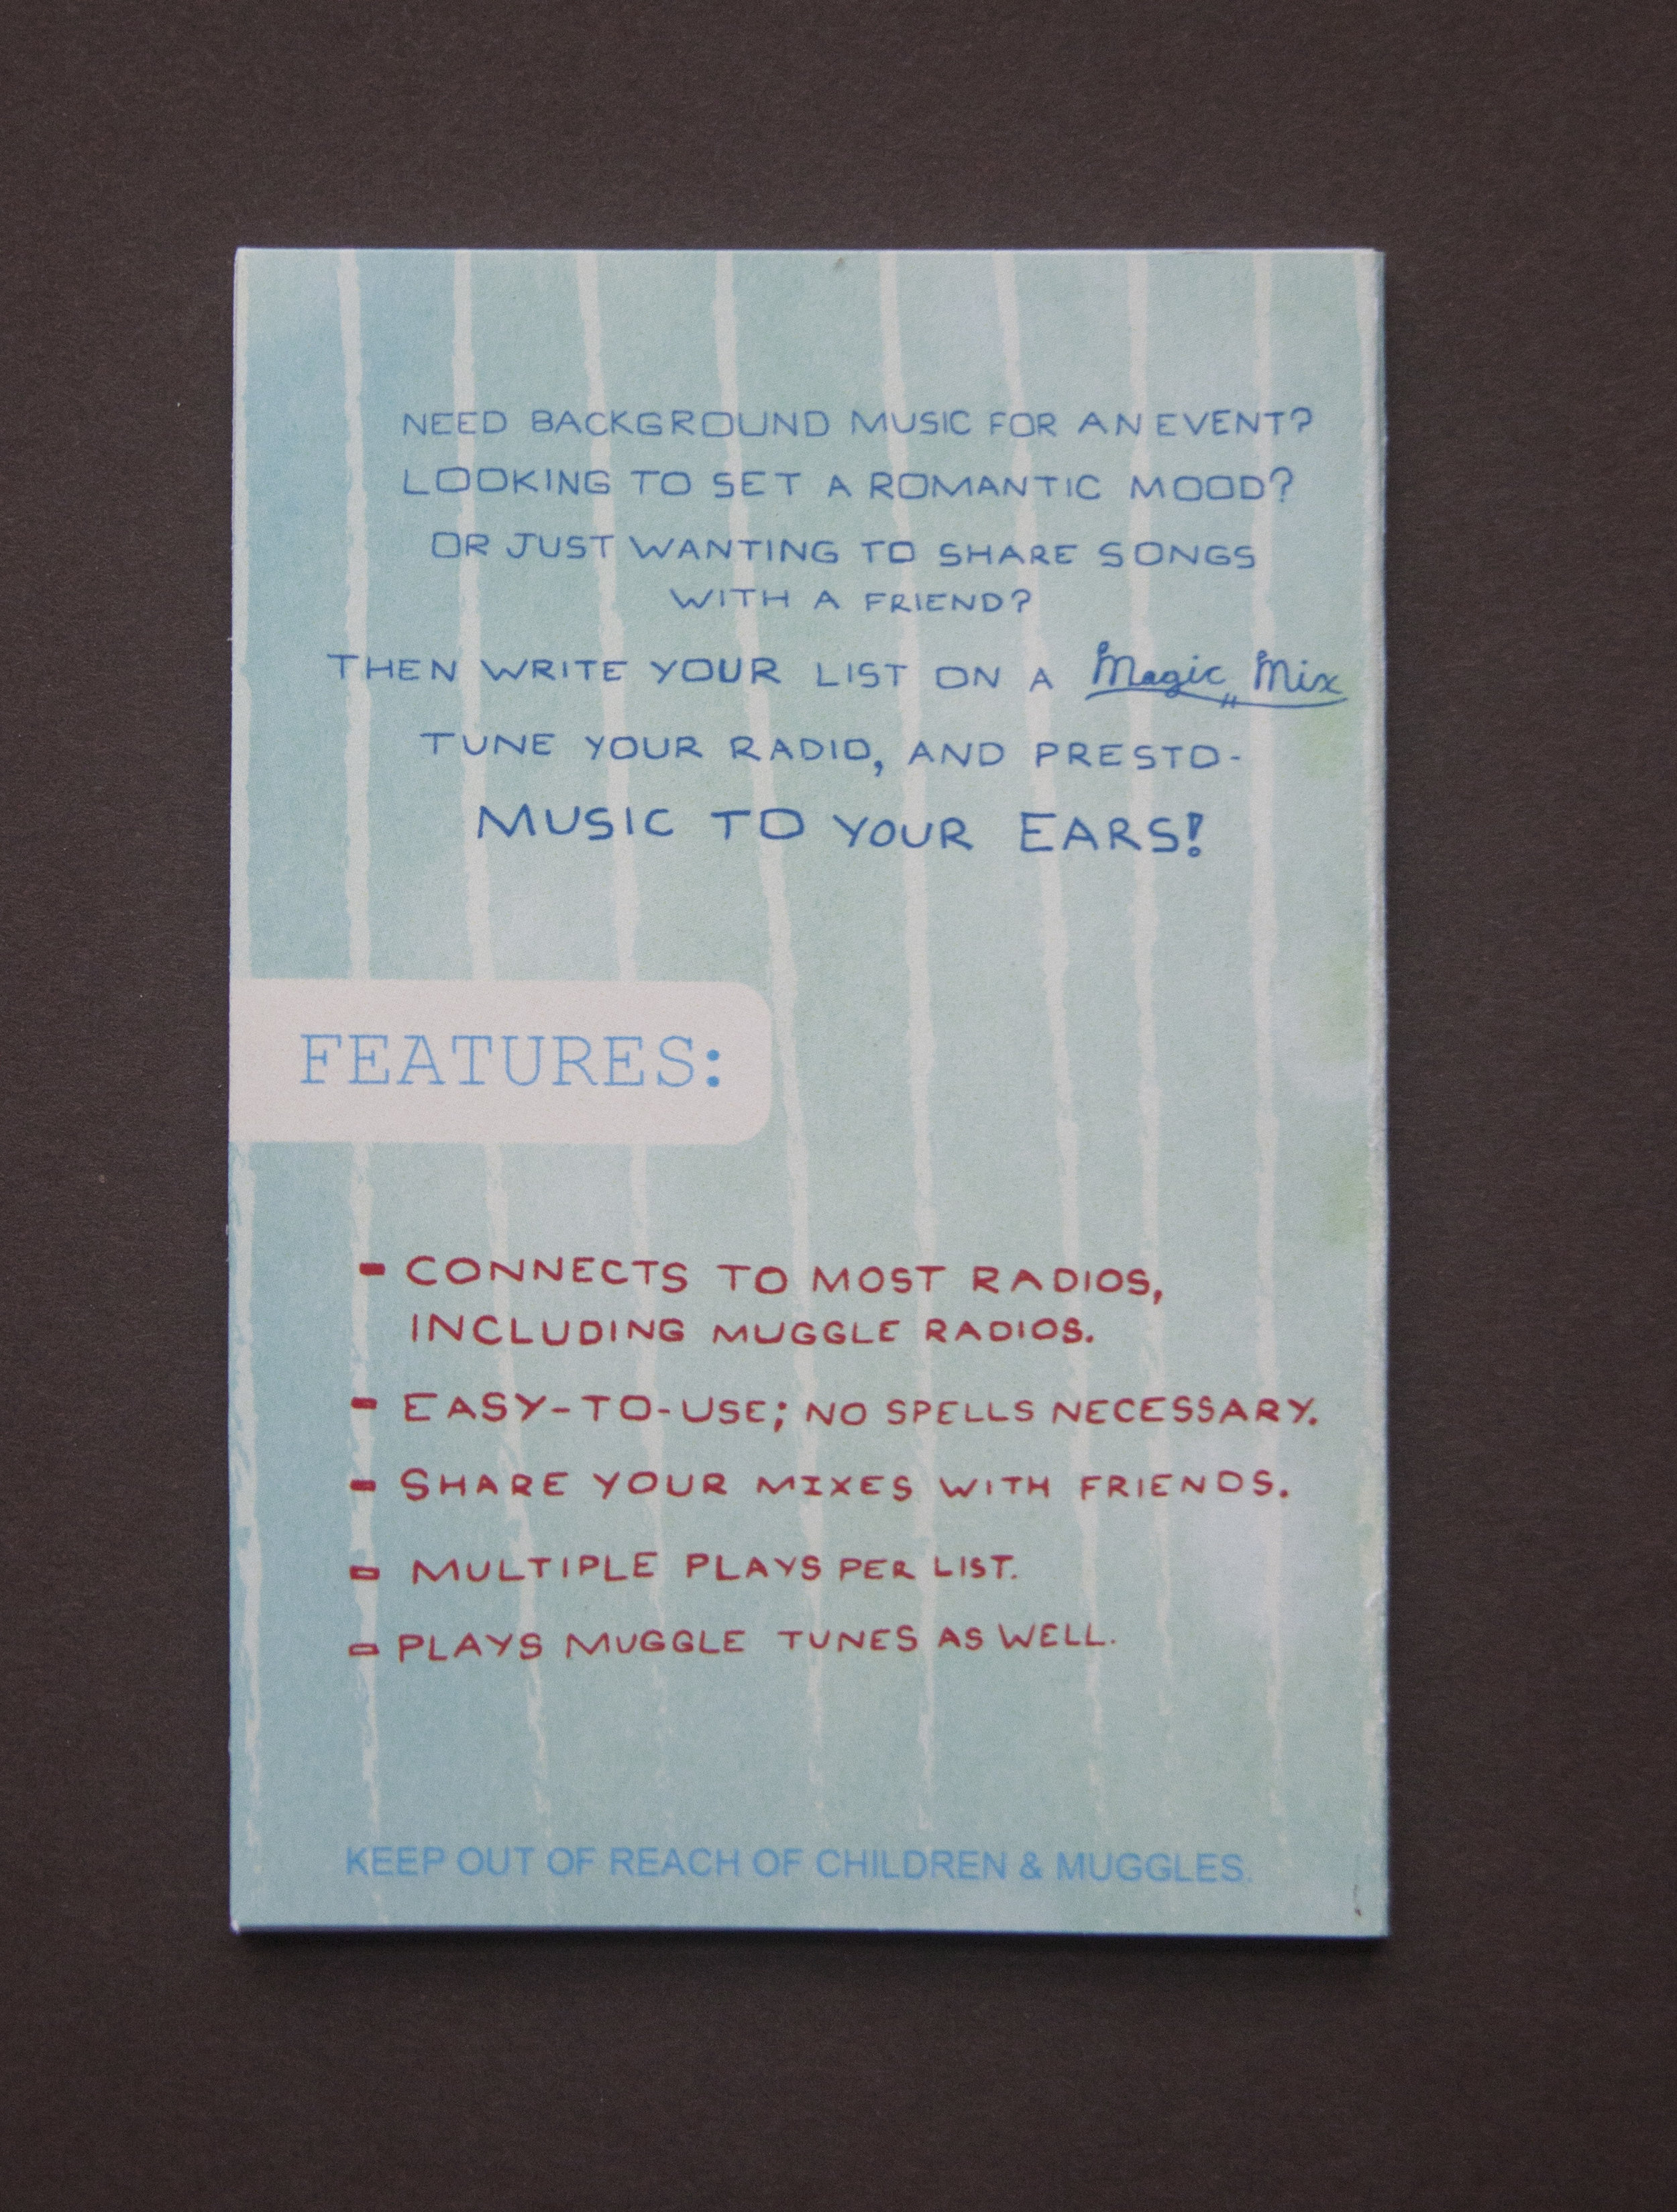 NEED BACKGROUND MUSIC FOR AN EVENT?
LOOKING TO SET A ROMANTIC MOOD?
OR JUST WANTING TO SHARE SONGS
WITH A FRIEND?
THEN WRITE YOUR LIST ON A Magic Mix
TUNE YOUR RADIO, AND PRESTO-
MUSIC TO YOUR EARS!
FEATURES:
- CONNECTS TO MOST RADIOS,
INCLUDING MUGGLE RADIOS.
- EASY-TO-USE; NO SPELLS NECESSARY.
- SHARE YOUR MIXES WITH FRIENDS.
- MULTIPLE PLAYS PER LIST.
- PLAYS MUGGLE TUNES AS WELL.
KEEP OUT OF REACH OF CHILDREN & MUGGLES.